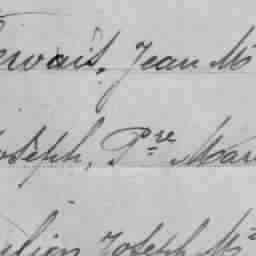 ervais, Jean M
oseph, Pre Mar
ulien Joseph Mie